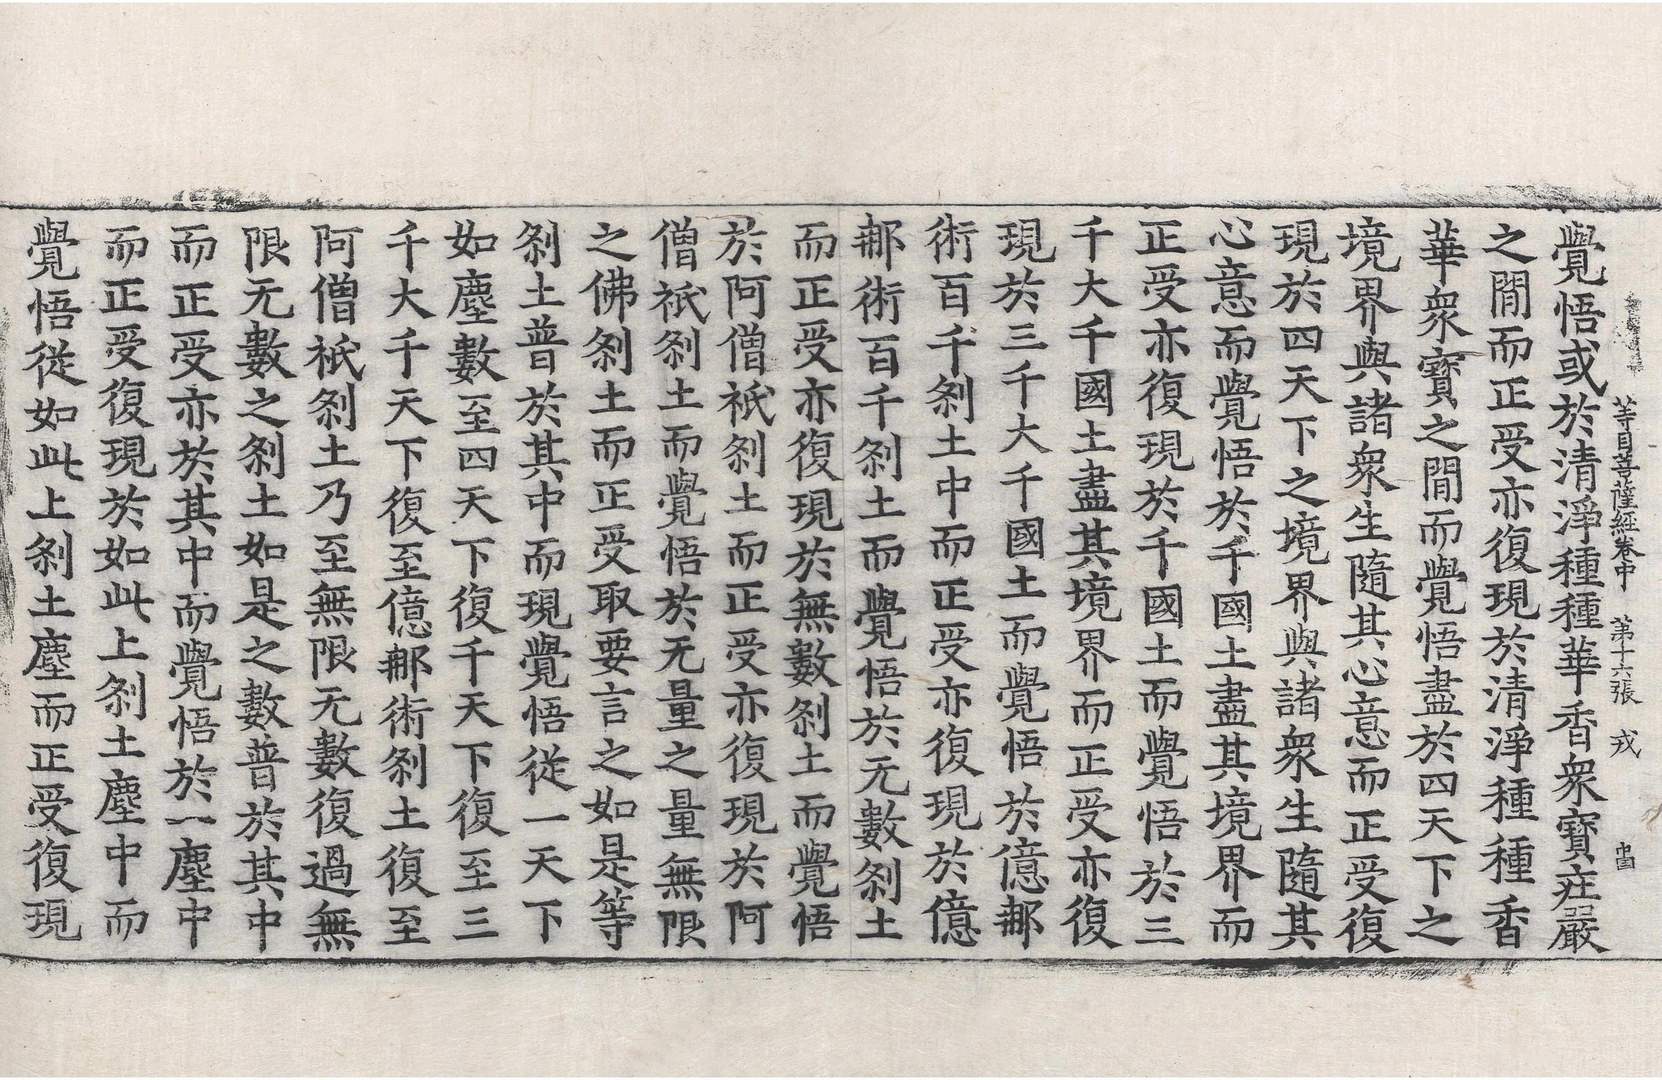 等目菩薩經卷中　第十六張　戎
覺悟或於清淨種種華香衆寶㽵嚴
之閒而正受亦復現於清淨種種香
華衆寶之閒而覺悟盡於四天下之
境界與諸衆生隨其心意而正受復
現於四天下之境界與諸衆生隨其
心意而覺悟於千國土盡其境界而
正受亦復現於千國土而覺悟於三
千大千國土盡其境界而正受亦復
現於三千大千國土而覺悟於億郍
術百千刹土中而正受亦復現於億
郍術百千刹土而覺悟於无數刹土
而正受亦復現於無數刹土而覺悟
於阿僧祇刹土而正受亦復現於阿
僧祇刹土而覺悟於无量之量無限
之佛刹土而正受取要言之如是等
刹土普於其中而現覺悟從一天下
如塵數至四天下復千天下復至三
千大千天下復至億郍術刹土復至
阿僧祇刹土乃至無限无數復過無
限无數之刹土如是之數普於其中
而正受亦於其中而覺悟於一塵中
而正受復現於如此上刹土塵中而
覺悟從如此上刹土塵而正受復現